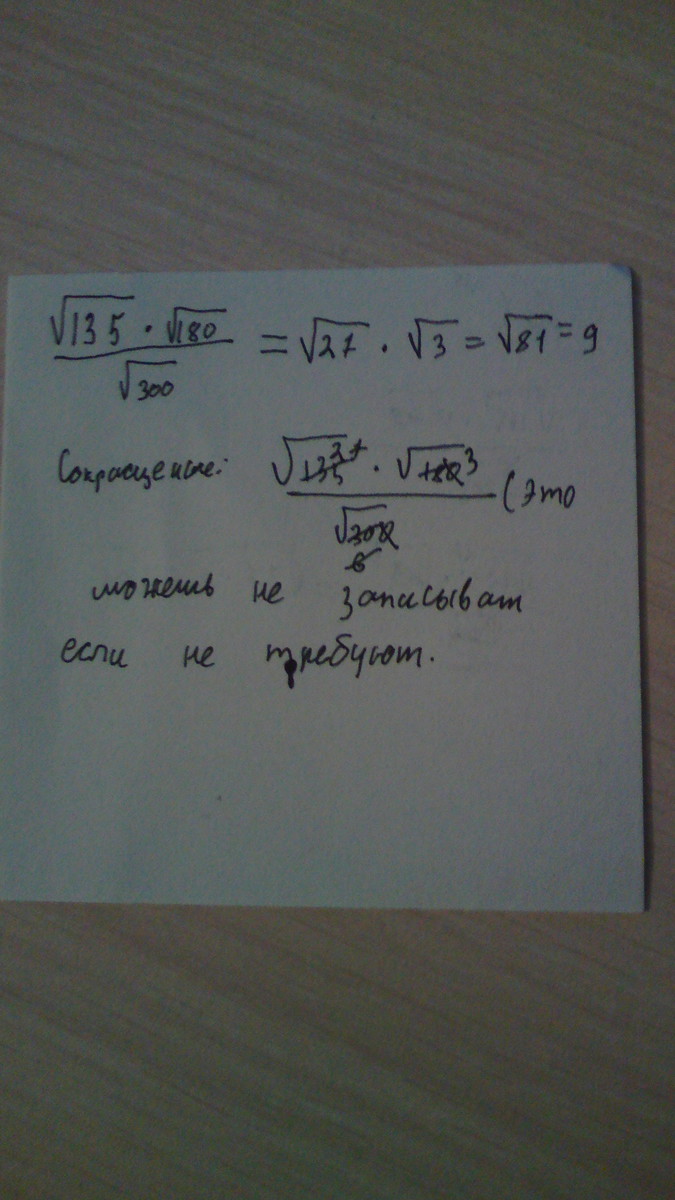 √135 · √180 / √300 = √27 · √3 = √81 = 9
Сокращение: √135 · √180 3 / √300 (Это
можешь не записыват
если не требуют.